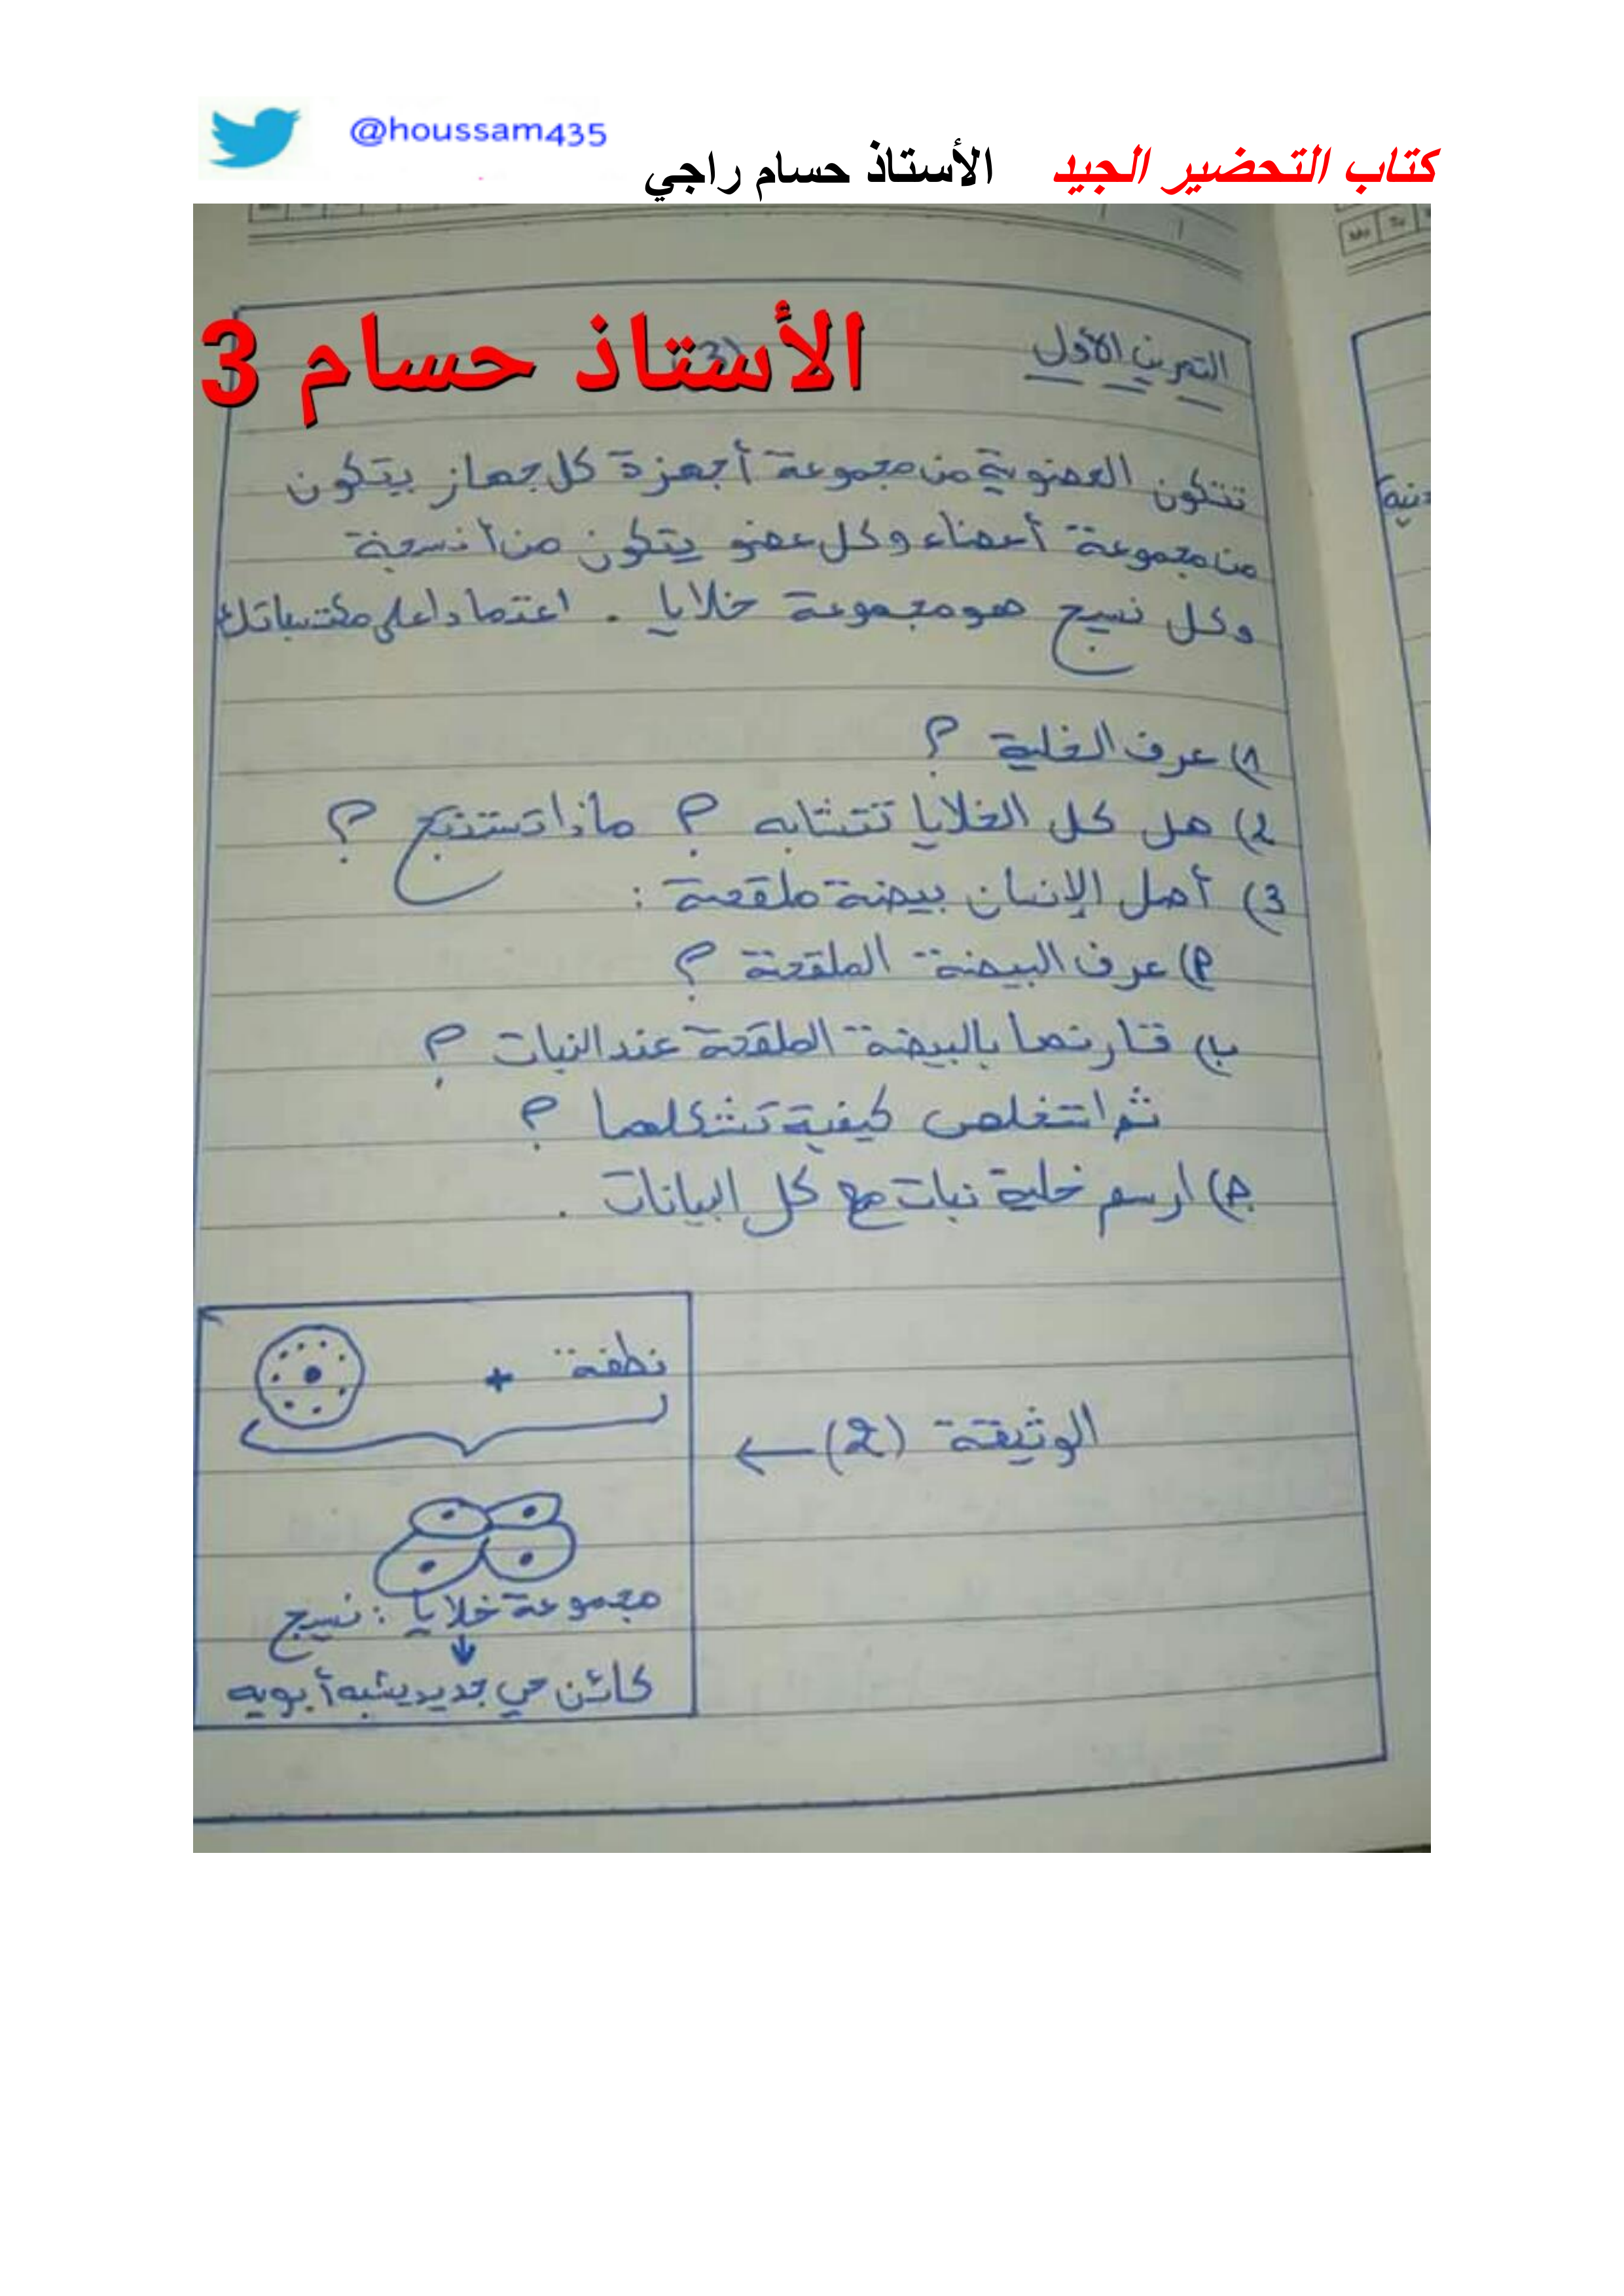 @houssam435
كتاب التحضير الجيد الأستاذ حسام راجي
الأستاذ حسام 3
التمرين الأول (3)
تتكون العضوية من مجموعة أجهزة كل جهاز يتكون
من مجموعة أعضاء وكل عضو يتكون من أنسجة
وكل نسيج هو مجموعة خلايا . اعتمادا على مكتسباتك
1) عرف الخلية ؟
2) هل كل الخلايا تتشابه ؟ ماذا تستنتج ؟
3) أصل الإنسان بيضة ملقحة :
أ) عرف البيضة الملقحة ؟
ب) قارنها بالبيضة الملقحة عند النبات ؟
ثم استخلص كيفية تشكلهما ؟
ج) ارسم خلية نبات مع كل البيانات .
نطفة +
الوثيقة (2) ←
مجموعة خلايا : نسيج
كائن حي جديد يشبه أبويه